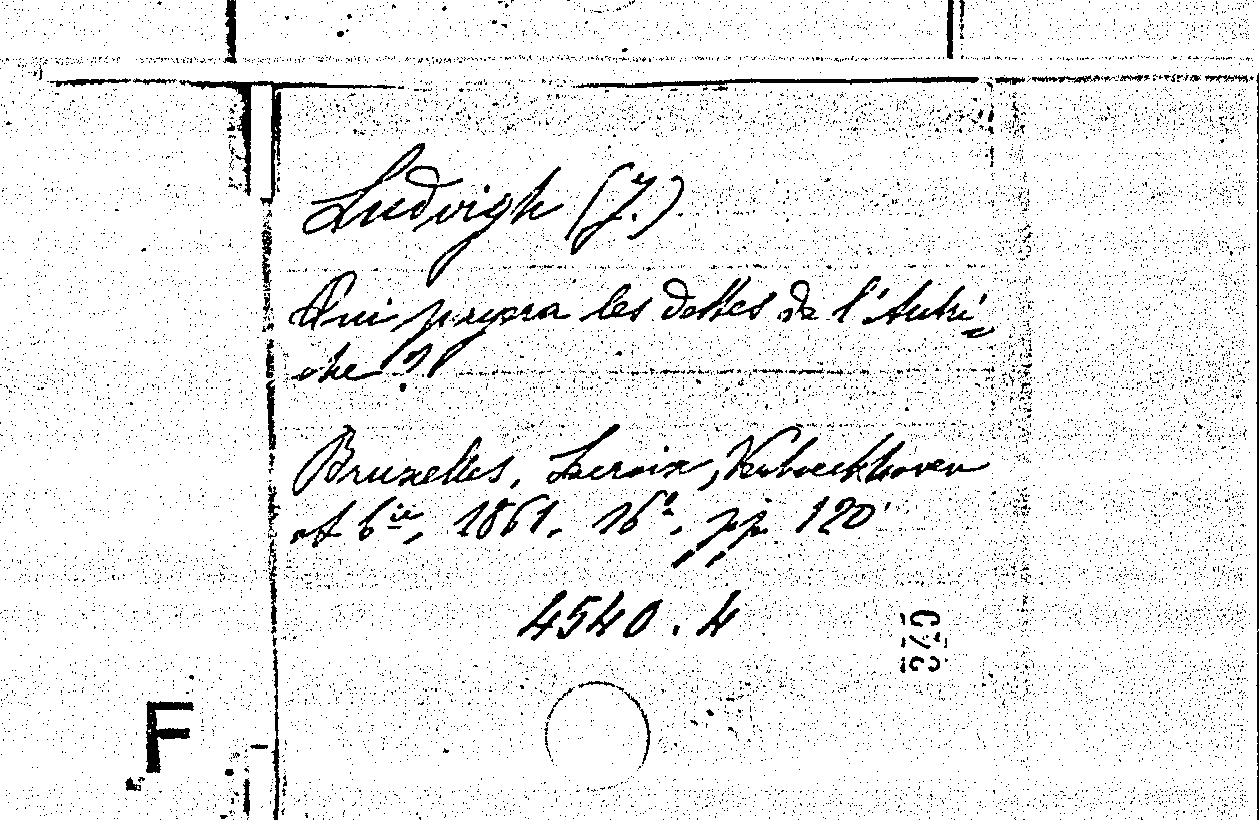 Ludvigh (J.)
Qui payera les dettes de l'Autri=
che?
Bruxelles, Lacroix, Verboeckhoven
et Cie, 1861. 16º. pp. 120
4540.4
F